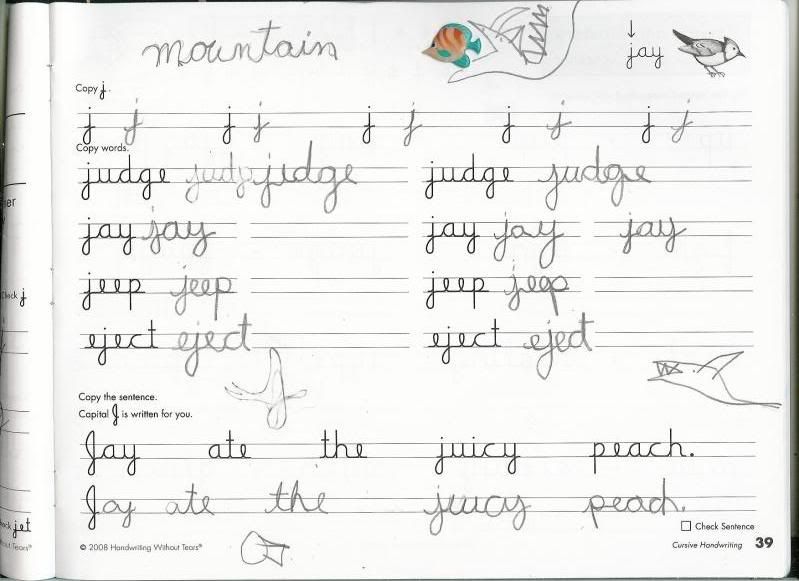 mountain
jay
Copy j.
j j j j j j j j j j
Copy words.
judge judge judge judge
jay jay jay jay jay
jeep jeep jeep jeep
eject eject eject eject
Copy the sentence.
Capital J is written for you.
Jay ate the juicy peach.
Jay ate the juicy peach.
Check Sentence
© 2008 Handwriting Without Tears®
Cursive Handwriting 39
Check j
jet